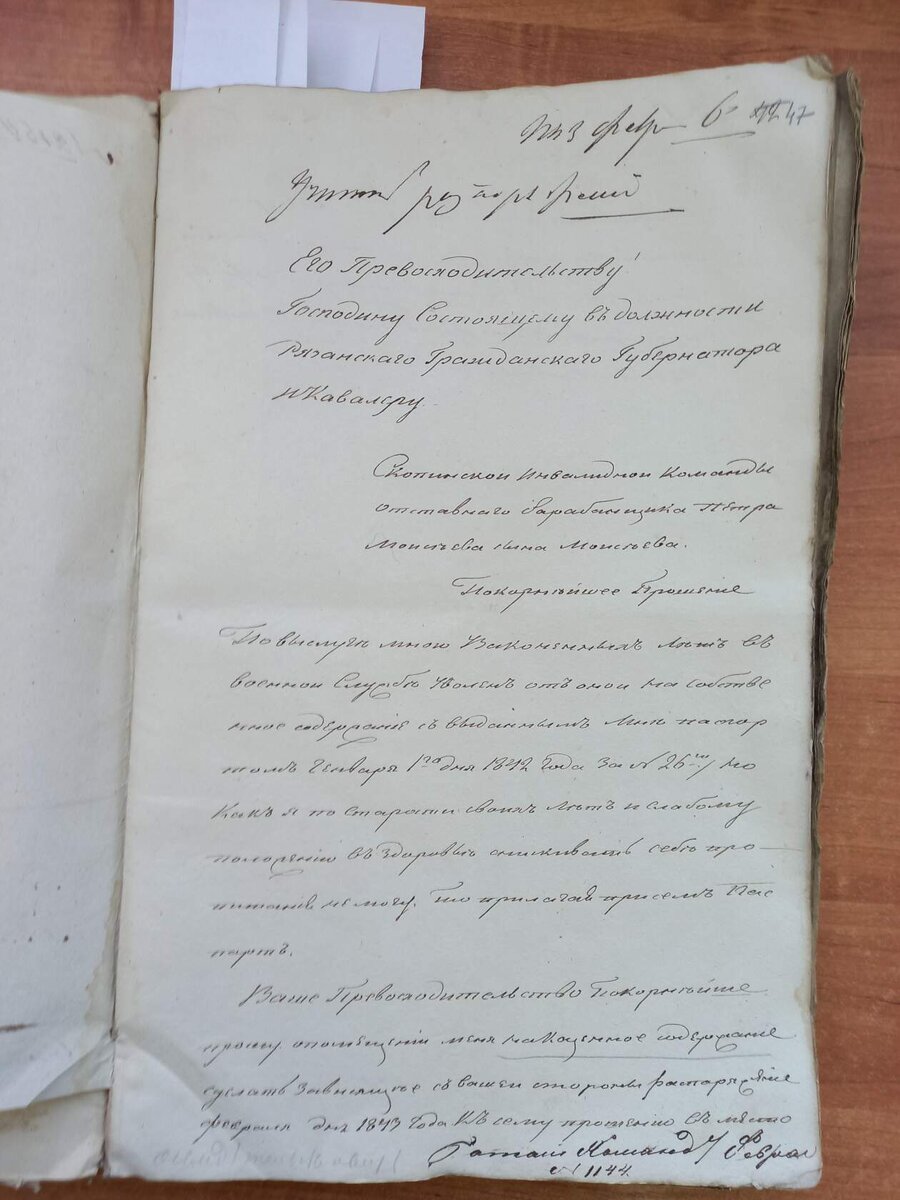 6 47
Его Превосходительству!
Господину Состоящему въ должности
Рязанскаго Гражданскаго Губернатора
и Кавалеру.
Скопинской Инвалидной Команды
отставнаго барабанщика Петра
Моисѣева сына Моисѣева.
Покорнѣйшее Прошение
По выслугѣ мною Законенныхъ лѣтъ въ
военной Службѣ Уволенъ отъ оной на собстве
нное содержание съ выданнымъ мнѣ паспор
томъ Генваря 1го дня 1842 года за № 26м но
Какъ я по старати своихъ лѣтъ и слабому
положению въ здоровьи снискивать себѣ про-
питания не могу. То прилагая присемъ Пас
портъ.
Ваше Превосходительство Покорнѣйше
прошу опомѣщении меня накаценное содержание
сделать Зависящее съ вашей стороны распоряжение
февраля дня 1843 года Къ сему прошению въ мѣсто
Команд Феврал
№ 1144